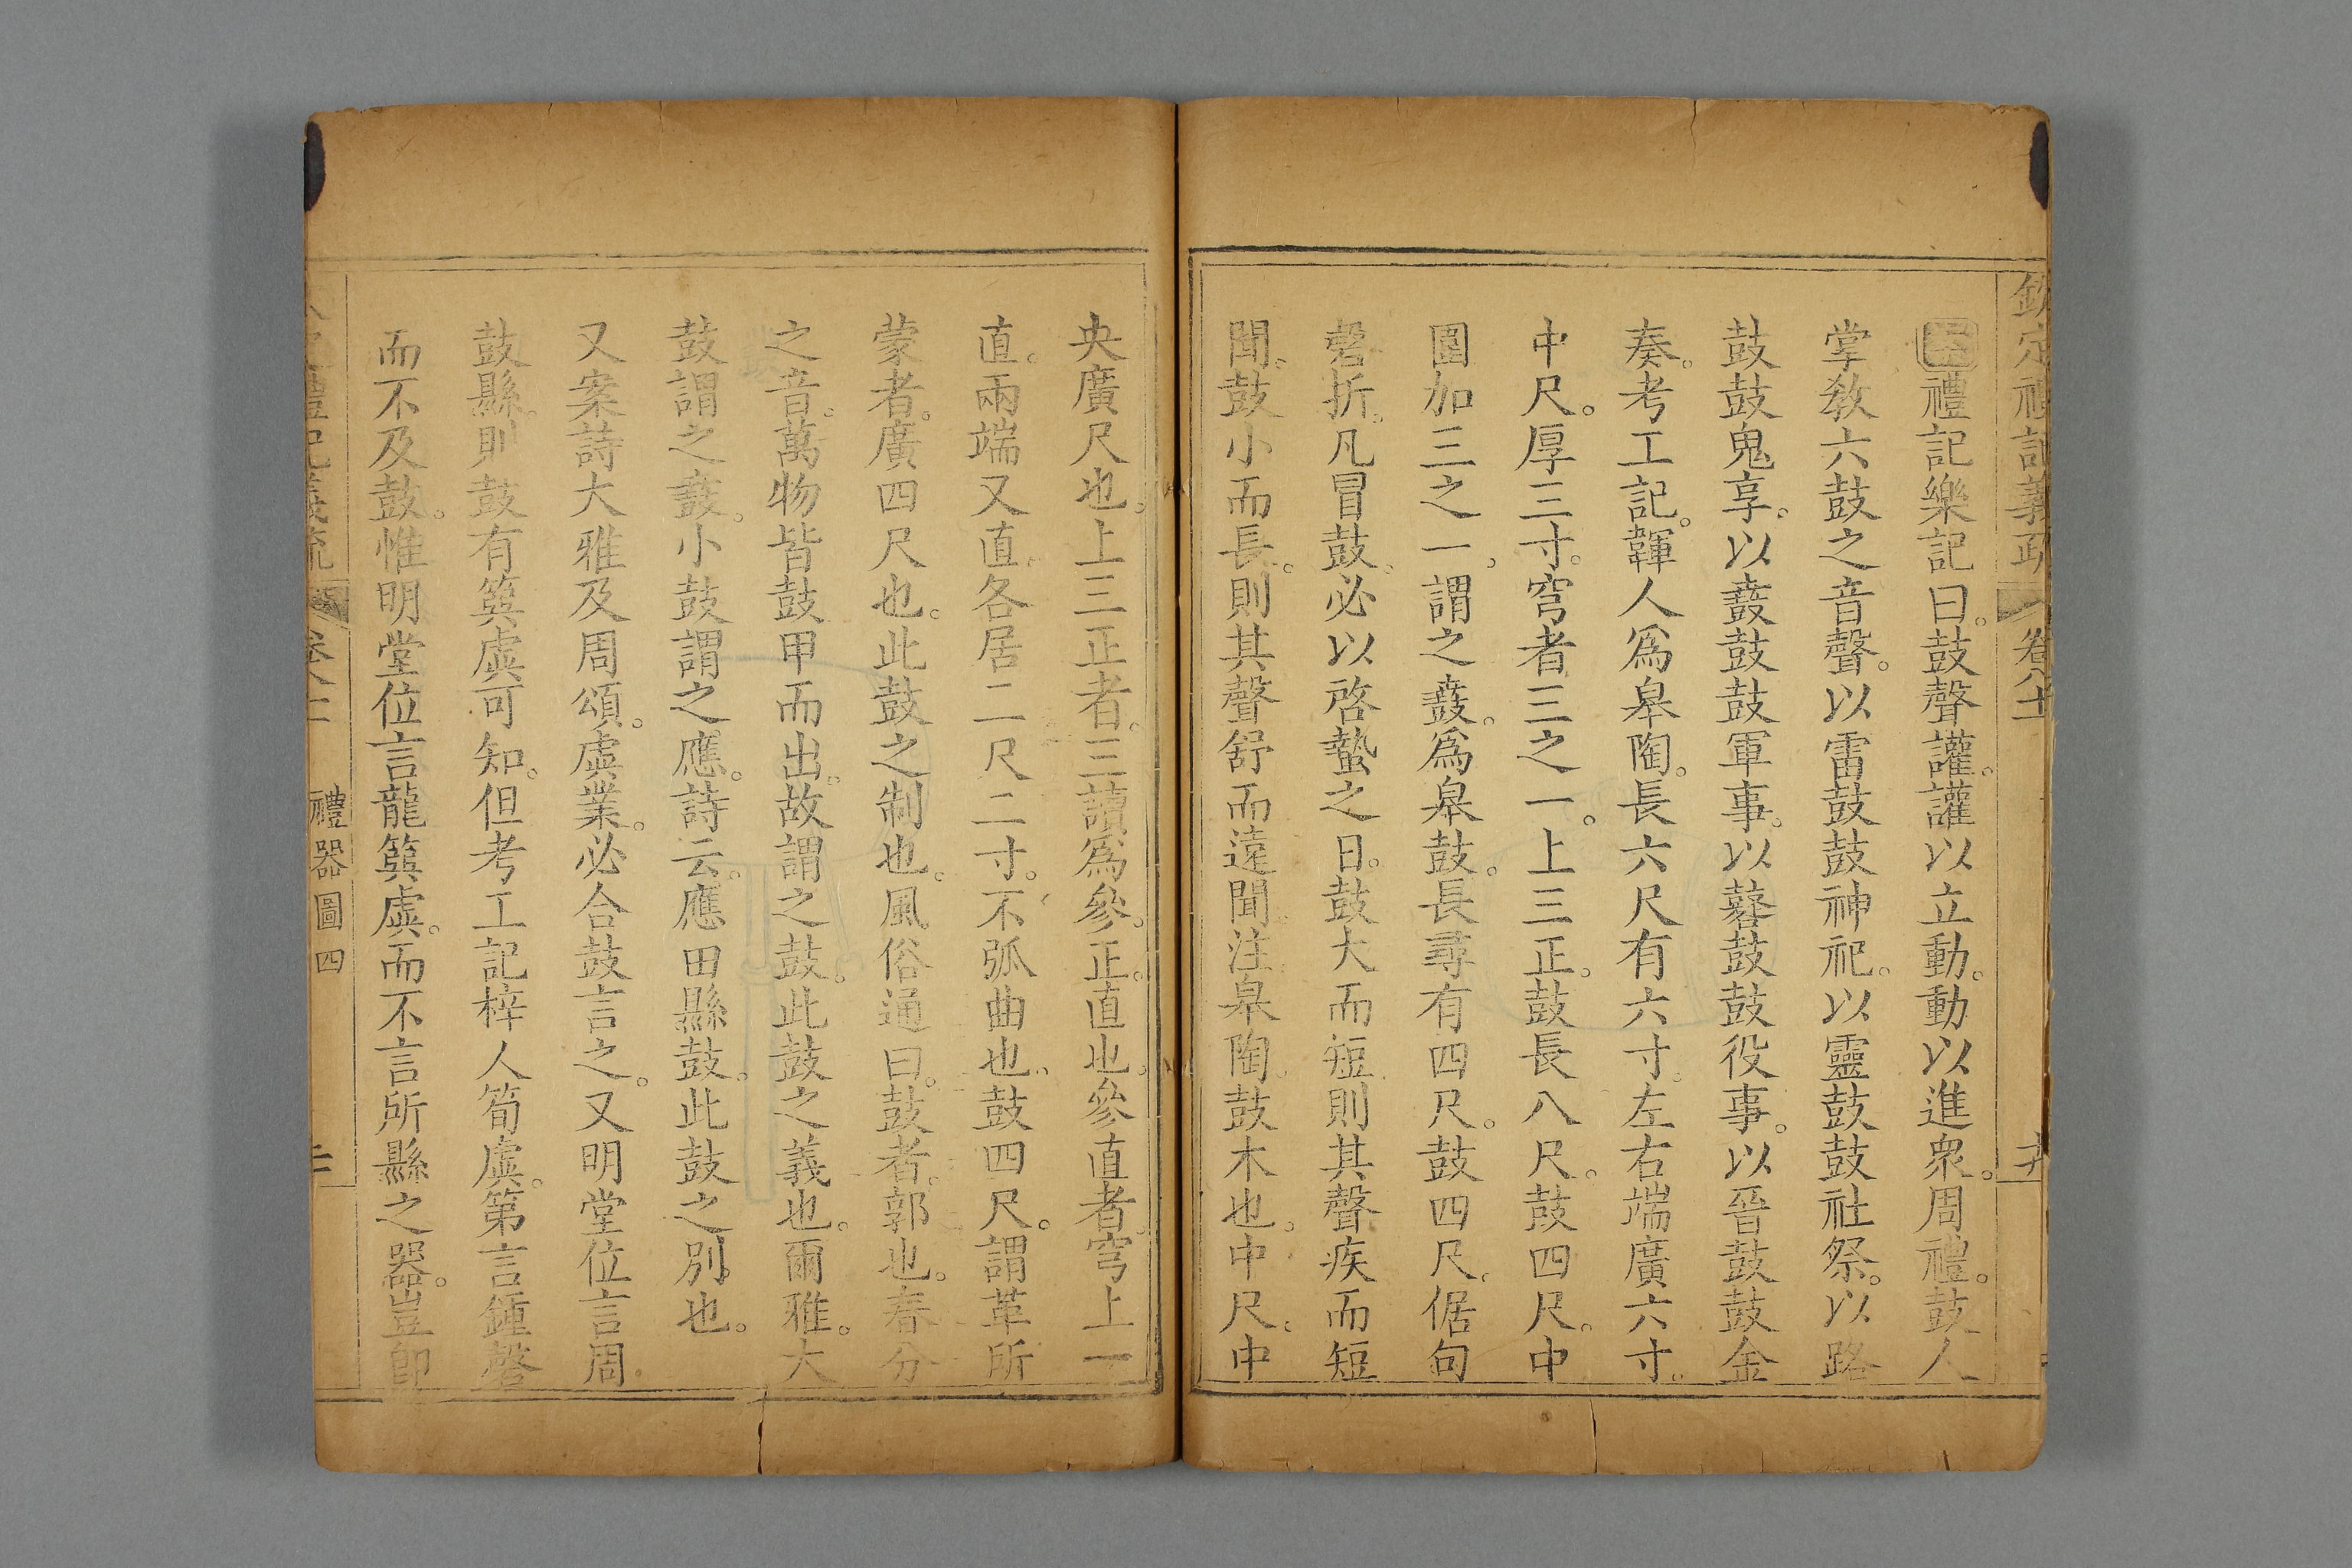 欽定禮記義疏 卷八十
禮記樂記曰。鼓聲讙。讙以立動。動以進衆。周禮。鼓人
掌教六鼓之音聲。以雷鼓鼓神祀。以靈鼓鼓社祭。以路
鼓鼓鬼享。以鼖鼓鼓軍事。以鼛鼓鼓役事。以晉鼓鼓金
奏。考工記。韗人爲皋陶。長六尺有六寸。左右端廣六寸。
中尺。厚三寸。穹者三之一。上三正。鼓長八尺。鼓四尺。中
圍加三之一。謂之鼖。爲皋鼓。長尋有四尺。鼓四尺。倨句
磬折。凡冒鼓。必以啓蟄之日。鼓大而短則其聲疾而短
聞。鼓小而長。則其聲舒而遠聞。注。皋陶。鼓木也。中尺。中
央廣尺也。上三正者。三讀爲參。正。直也。參直者。穹上一
直。兩端又直。各居二尺二寸。不弧曲也。鼓四尺。謂革所
蒙者。廣四尺也。此鼓之制也。風俗通曰。鼓者。郭也。春分
之音。萬物皆鼓甲而出。故謂之鼓。此鼓之義也。爾雅。大
鼓謂之鼖。小鼓謂之應。詩云。應田縣鼓。此鼓之別也。
又案詩大雅及周頌。虡業。必合鼓言之。又明堂位言周
鼓縣。則鼓有簨虡可知。但考工記梓人筍虡。第言鍾磬
而不及鼓。惟明堂位言龍簨虡。而不言所縣之器。豈卽
禮記義疏 卷八十 禮器圖四